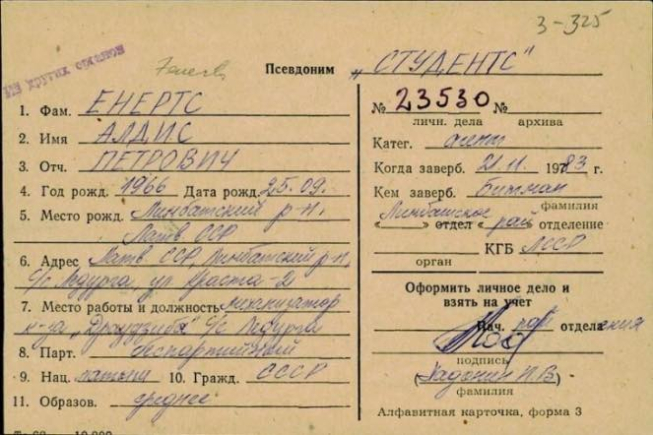 3-325
Псевдоним „СТУДЕНТС"
1. Фам. ЕНЕРТС
2. Имя АЛДИС
3. Отч. ПЕТРОВИЧ
4. Год рожд. 1966 Дата рожд. 25.09.
5. Место рожд. Лимбажский р-н.
Латв. ССР
6. Адрес Латв. ССР, Лимбажский р-н,
с/с Лидурга, ул Краста-2
7. Место работы и должность механизатор
к-за „Драудзиба" с/с Лидурга
8. Парт. беспартийный
9. Нац. латыш 10. Гражд. СССР
11. Образов. среднее
№ 23530 №
личн. дела архива
Катег. агент
Когда заверб. 21.11. 1983 г.
Кем заверб. Битман
фамилия
Лимбажское рай
отдел отделение
КГБ ЛССР
орган
Оформить личное дело и
взять на учет
Нач. рай отделения
подпись
фамилия
Алфавитная карточка, форма 3